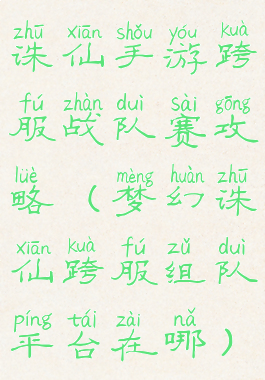 zhū xiān shǒu yóu kuà
诛仙手游跨
fú zhàn duì sài gōng
服战队赛攻
lüè mèng huàn zhū
略（梦幻诛
xiān kuà fú zǔ duì
仙跨服组队
píng tái zài nǎ
平台在哪）